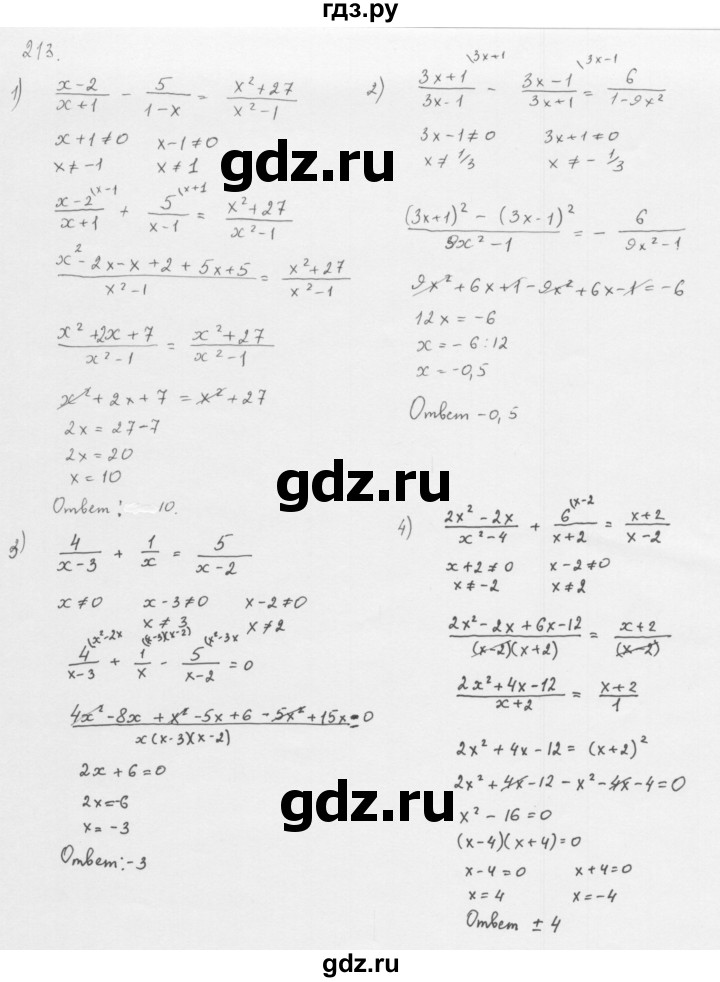 гдз.ру
213.
1) (x-2)/(x+1) - 5/(1-x) = (x²+27)/(x²-1)
x+1≠0 x-1≠0
x≠-1 x≠1
(x-2)/(x+1) \x-1 + 5/(x-1) \x+1 = (x²+27)/(x²-1)
(x²-2x-x+2+5x+5)/(x²-1) = (x²+27)/(x²-1)
(x²+2x+7)/(x²-1) = (x²+27)/(x²-1)
x²+2x+7=x²+27
2x=27-7
2x=20
x=10
Ответ: 10.
2) (3x+1)/(3x-1) \3x+1 - (3x-1)/(3x+1) \3x-1 = 6/(1-9x²)
3x-1≠0 3x+1≠0
x≠1/3 x≠-1/3
((3x+1)²-(3x-1)²)/(9x²-1) = -6/(9x²-1)
9x²+6x+1-9x²+6x-1=-6
12x=-6
x=-6:12
x=-0,5
Ответ -0,5
3) 4/(x-3) + 1/x = 5/(x-2)
x≠0 x-3≠0 x-2≠0
x≠3 x≠2
4/(x-3) \x²-2x + 1/x \(x-3)(x-2) - 5/(x-2) \x²-3x = 0
(4x²-8x+x²-5x+6-5x²+15x)/(x(x-3)(x-2)) = 0
2x+6=0
2x=-6
x=-3
Ответ:-3
4) (2x²-2x)/(x²-4) + 6/(x+2) \x-2 = (x+2)/(x-2)
x+2≠0 x-2≠0
x≠-2 x≠2
(2x²-2x+6x-12)/((x-2)(x+2)) = (x+2)/(x-2)
(2x²+4x-12)/(x+2) = (x+2)/1
2x²+4x-12=(x+2)²
2x²+4x-12-x²-4x-4=0
x²-16=0
(x-4)(x+4)=0
x-4=0 x+4=0
x=4 x=-4
Ответ ±4
gdz.ru
gdz.ru
gdz.ru
gdz.ru
gdz.ru